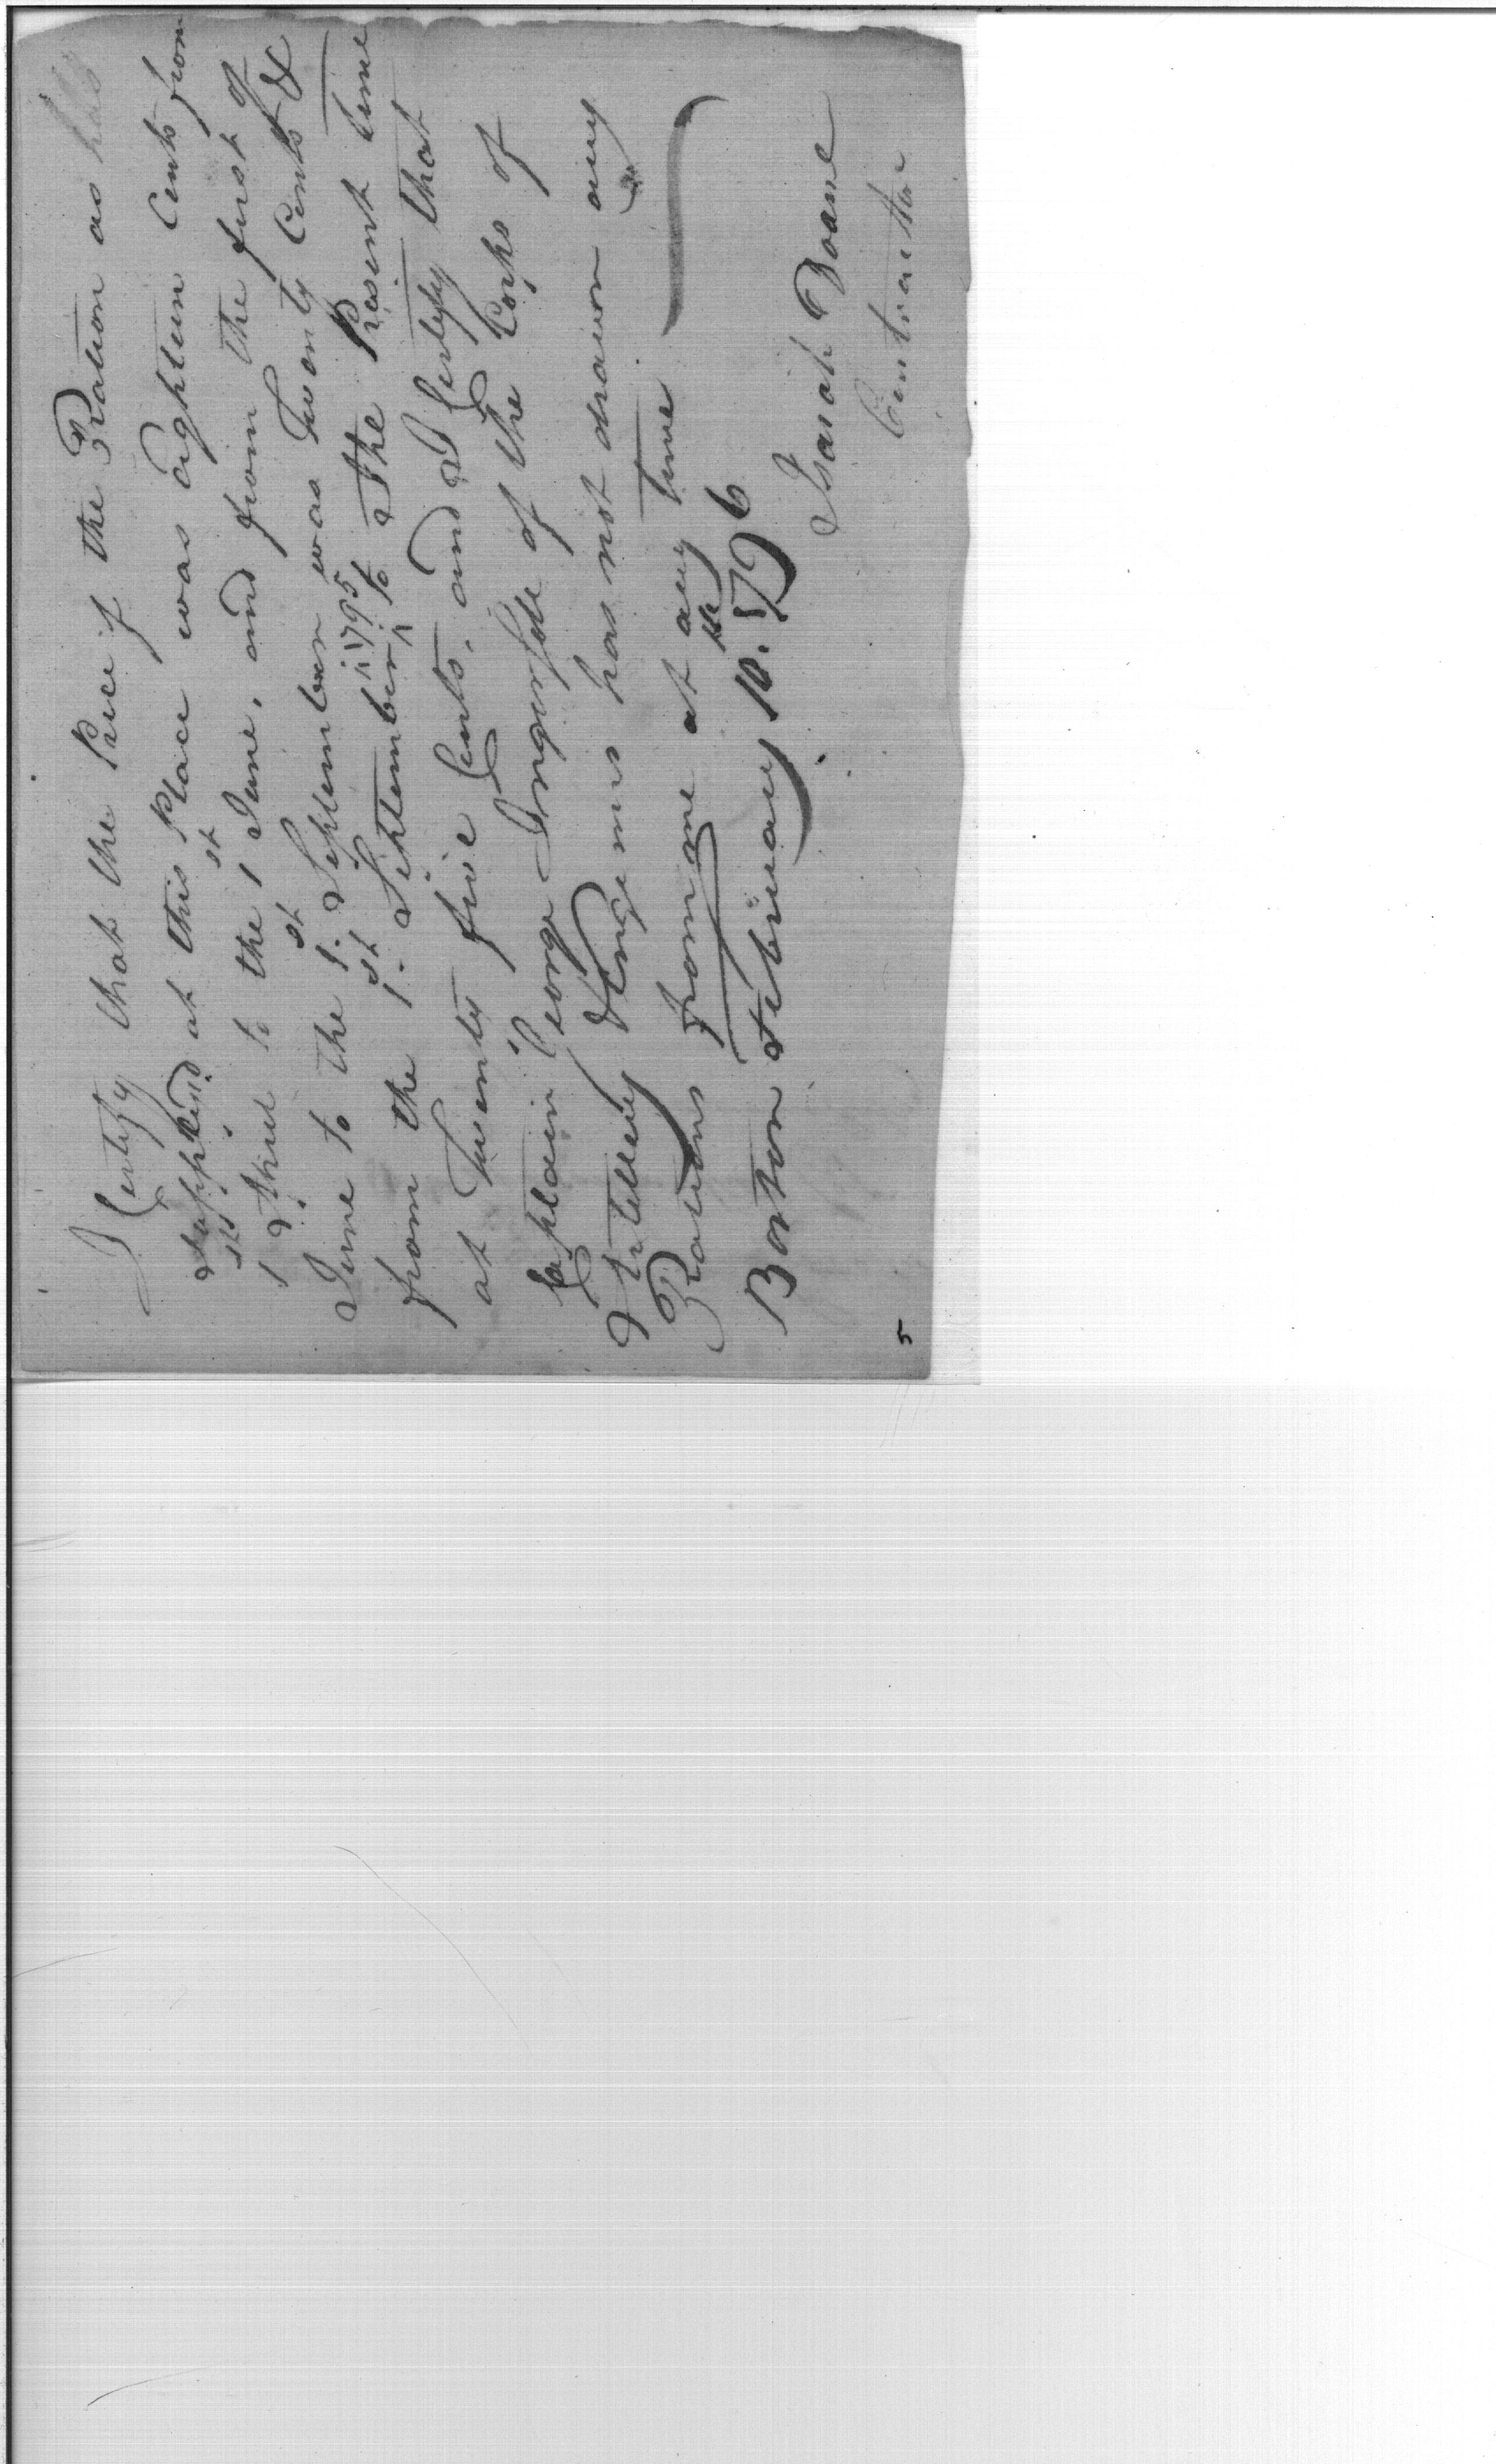 I Certify that the Price of the Ration as
supplied at this Place was eighteen Cents from
1st April to the 1st June, and from the first of
June to the 1st September was Twenty Cents &
from the 1st September 1795 to the Present time
at Twenty five Cents, and I Certify that
Captain George Ingersoll of the Corps of
Artillery & Engineers has not drawn any
Rations from me at any time
Boston February 10th 1796
Isaiah Doane
Contractor
5